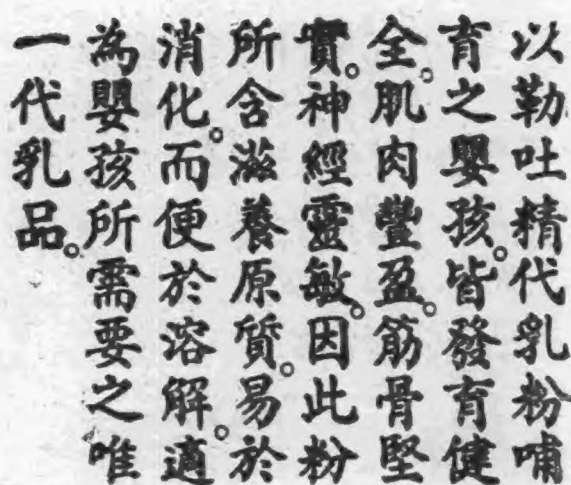 以勒吐精代乳粉哺
育之嬰孩。皆發育健
全。肌肉豐盈。筋骨堅
實。神經靈敏。因此粉
所含滋養原質。易於
消化。而便於溶解。適
為嬰孩所需要之唯
一代乳品。